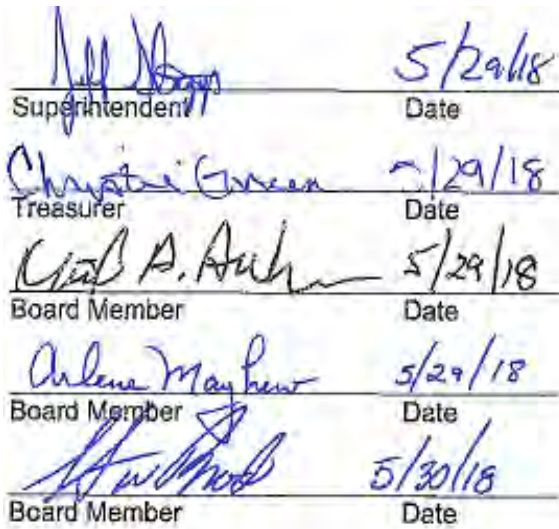 Jeff 5/29/18
Superintendent Date
Christie Green /29/18
Treasurer Date
A. 5/29/18
Board Member Date
Arlene Mayhew 5/29/18
Board Member Date
5/30/18
Board Member Date